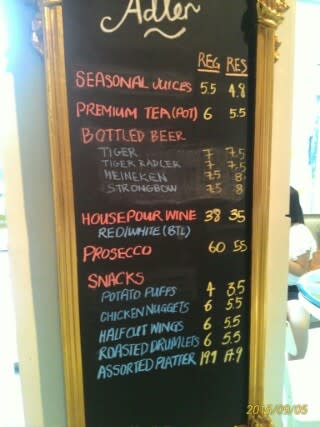 Adler
REG RES
SEASONAL JUICES 5.5 4.8
PREMIUM TEA (POT) 6 5.5
BOTTLED BEER
TIGER 7 7.5
TIGER RADLER 7 7.5
HEINEKEN 7.5 8
STRONGBOW 7.5 8
HOUSEPOUR WINE 38 35
RED/WHITE (BTL)
PROSECCO 60 55
SNACKS
POTATO PUFFS 4 3.5
CHICKEN NUGGETS 6 5.5
HALF CUT WINGS 6 5.5
ROASTED DRUMLETS 6 5.5
ASSORTED PLATTER 19.9 17.9